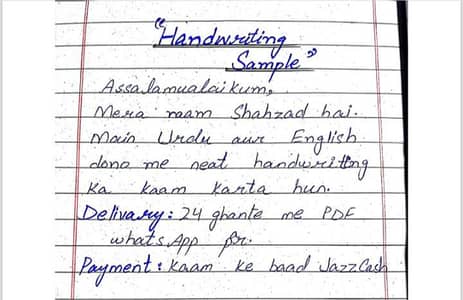 "Handwriting
Sample"
Assalamualaikum,
Mera naam Shahzad hai.
Main Urdu aur English
dono me neat handwriting
Ka kaam karta hun.
Delivary: 24 ghante me PDF
whatsApp pr.
Payment: Kaam ke baad JazzCash